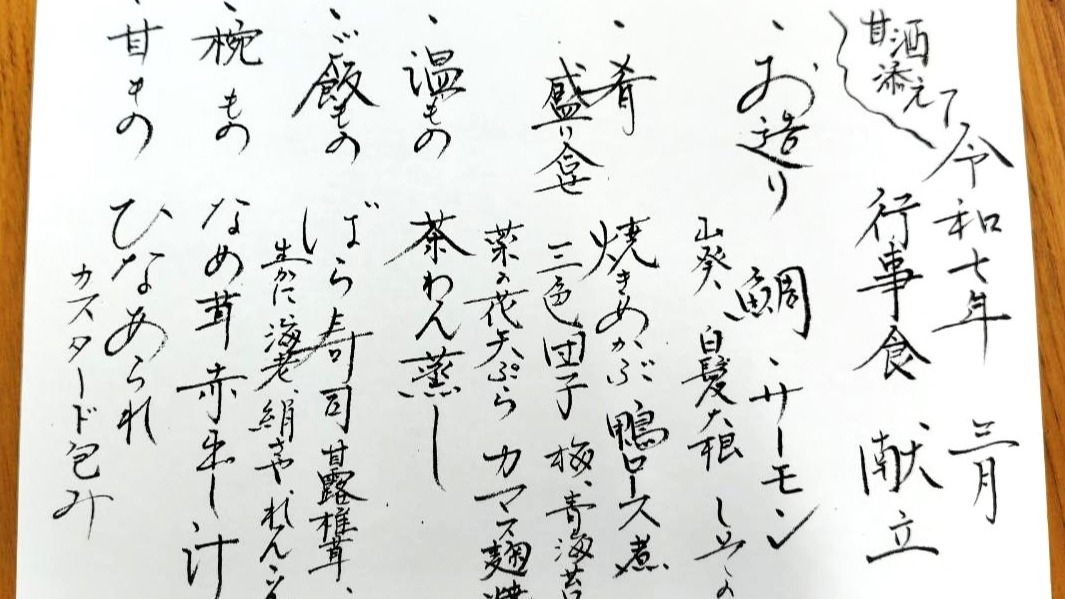 令和七年 三月
行事食 献立
甘酒添えて
・お造り 鯛・サーモン
山葵、白髪大根 しその
・肴 焼きめかぶ 鴨ロース煮
盛り合せ 三色団子 梅、青海苔
菜の花天ぷら カマス麹焼
・温もの 茶わん蒸し
・ご飯もの ばら寿司 甘露椎茸、
生かに海老、絹さや れんこん
・椀もの なめ茸赤出し汁
・甘もの ひなあられ
カスタード包み